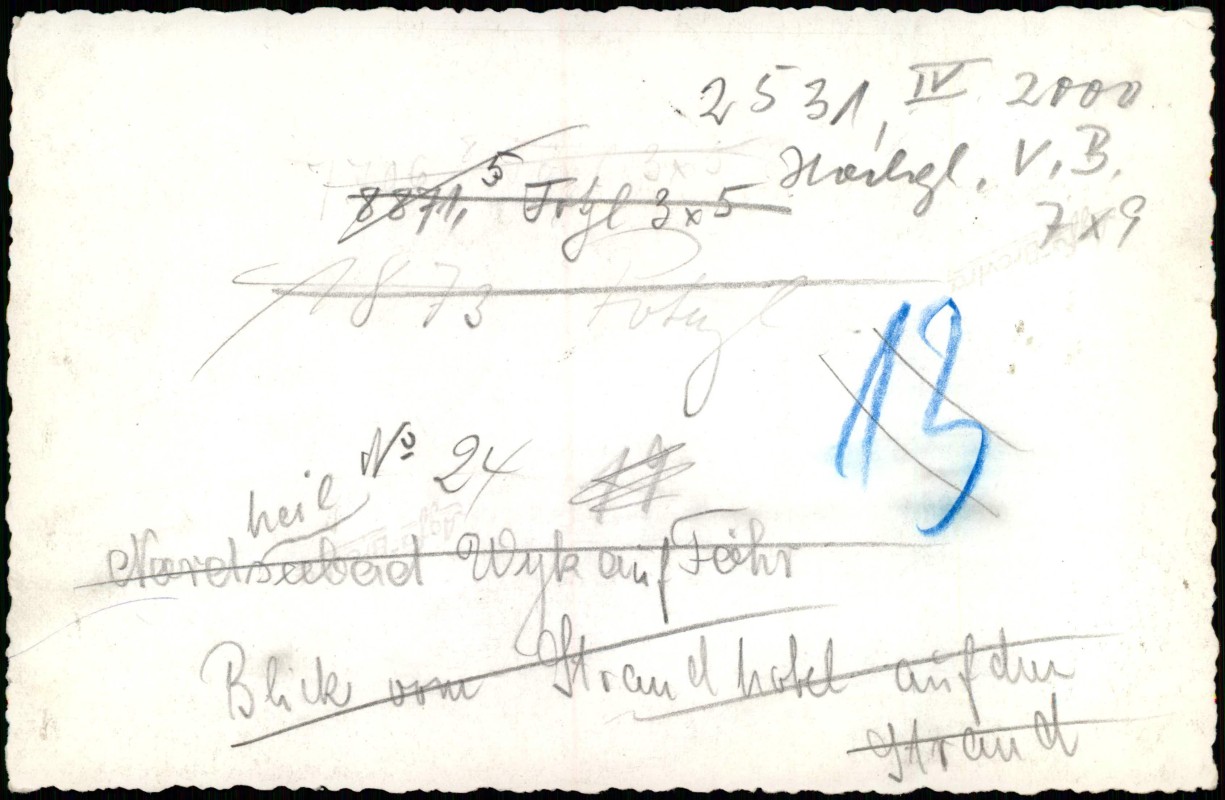 2531, IV 2000
V.B.
7x9
8871, 5 3x5
1873
13
No 24
heil
Nordseebad Wyk auf Föhr
Blick vom Strandhotel auf den
Strand